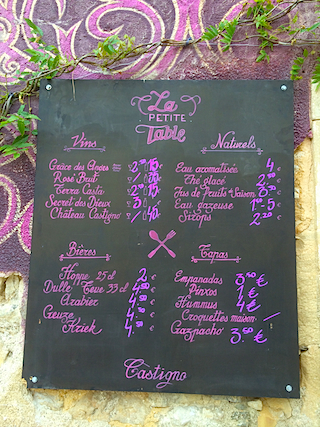 La
PETITE
Table
Vins
Grâce des Anges
Rosé Brut
Terra Casta
Secret des Dieux 3
Château Castigno
Naturels
Eau aromatisée 4 €
Thé glacé
Jus de Fruits Saison
Eau gazeuse
Sirops 2.20 €
Bières
Hoppe 25 cl 2 €
Dulle Teve 33 cl 4.50
Arabier 4.50 €
Geuze 4.50 €
Kriek 4.50 €
Tapas
Empanadas 3.50 €
Pinxos 1 €
Hummus 4 €
Croquettes maison /
Gazpacho 3.50 €
Castigno